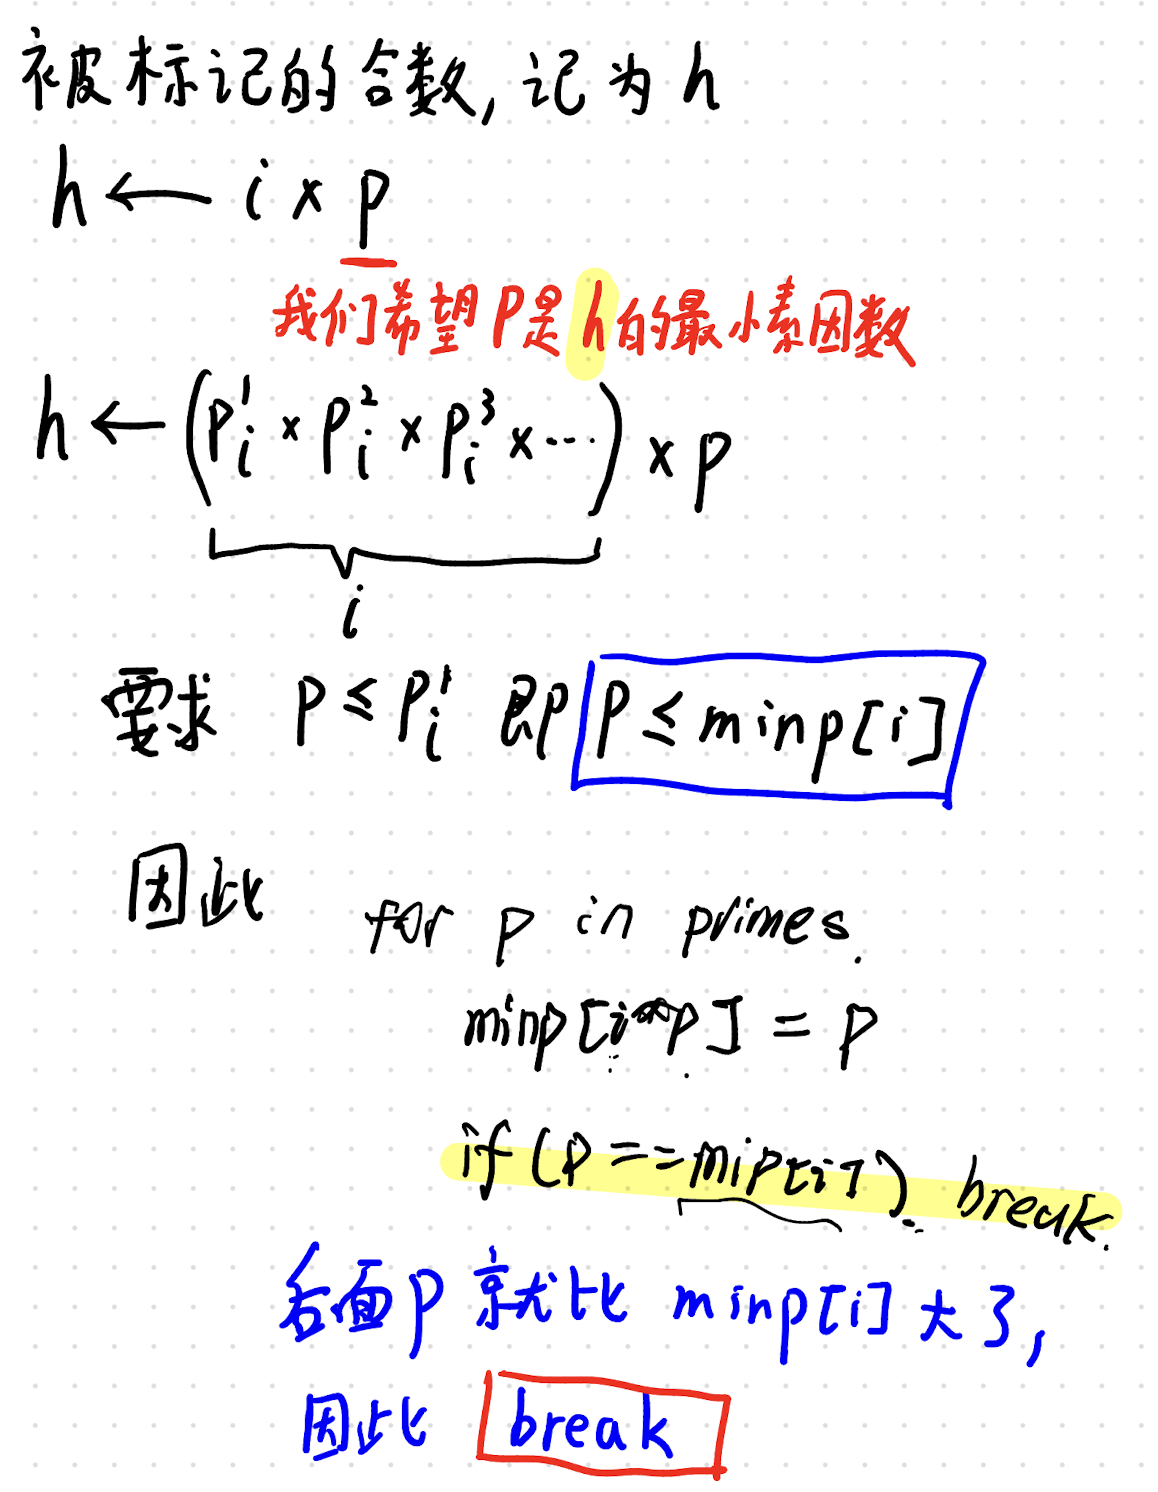 被标记的合数,记为h
h ← i × p
我们希望P是h的最小素因数
h ← (p_i^1 × p_i^2 × p_i^3 × ···) × p
i
要求 p ≤ p_i^1 即 p ≤ minp[i]
因此 for p in primes.
minp[i*p] = p
if (p == mip[i]). break.
后面p就比 minp[i] 大了,
因此 break